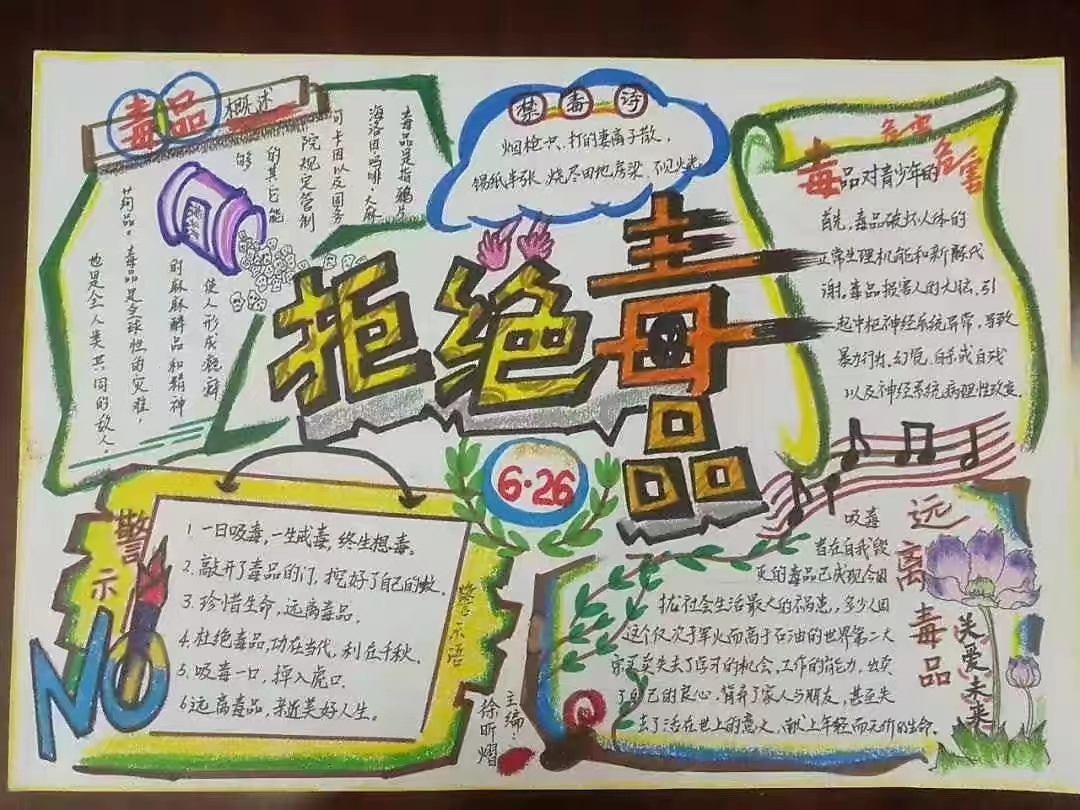 毒品概述
毒品是指鸦片
海洛因吗啡·大麻
可卡因以及国务
院规定管制
的其它能
够
使人形成瘾癖
的麻醉品和精神
药品。毒品是全球性的灾难,
也是全人类共同的敌人。
禁毒诗
烟枪一只、打的妻离子散、
锡纸半张 烧尽田地房梁、不见火光
拒绝毒品
6·26
危害
毒品对青少年的危害
首先,毒品破坏人体的
正常生理机能和新陈代
谢,毒品损害人的大脑,引
起中枢神经系统异常,导致
暴力行为、幻觉、自杀或自残
以及神经系统病理性改变.
警示
NO
1. 一日吸毒,一生戒毒,终生想毒。
2. 敲开了毒品的门,挖好了自己的坟.
3. 珍惜生命,远离毒品。
4. 杜绝毒品,功在当代,利在千秋.
5. 吸毒一口,掉入虎口.
6 远离毒品,亲近美好人生。
警示语
主编:
徐昕熠
远离毒品
关爱未来
吸毒
旨在自我毁
灭的毒品已成现今困
扰社会生活最大的祸患,多少人因
这个仅次于军火而高于石油的世界第二大
宗买卖失去了学习的机会,工作的能力,出卖
了自己的良心,背弃了家人与朋友,甚至失
去了活在世上的意义,献上年轻而无价的生命.